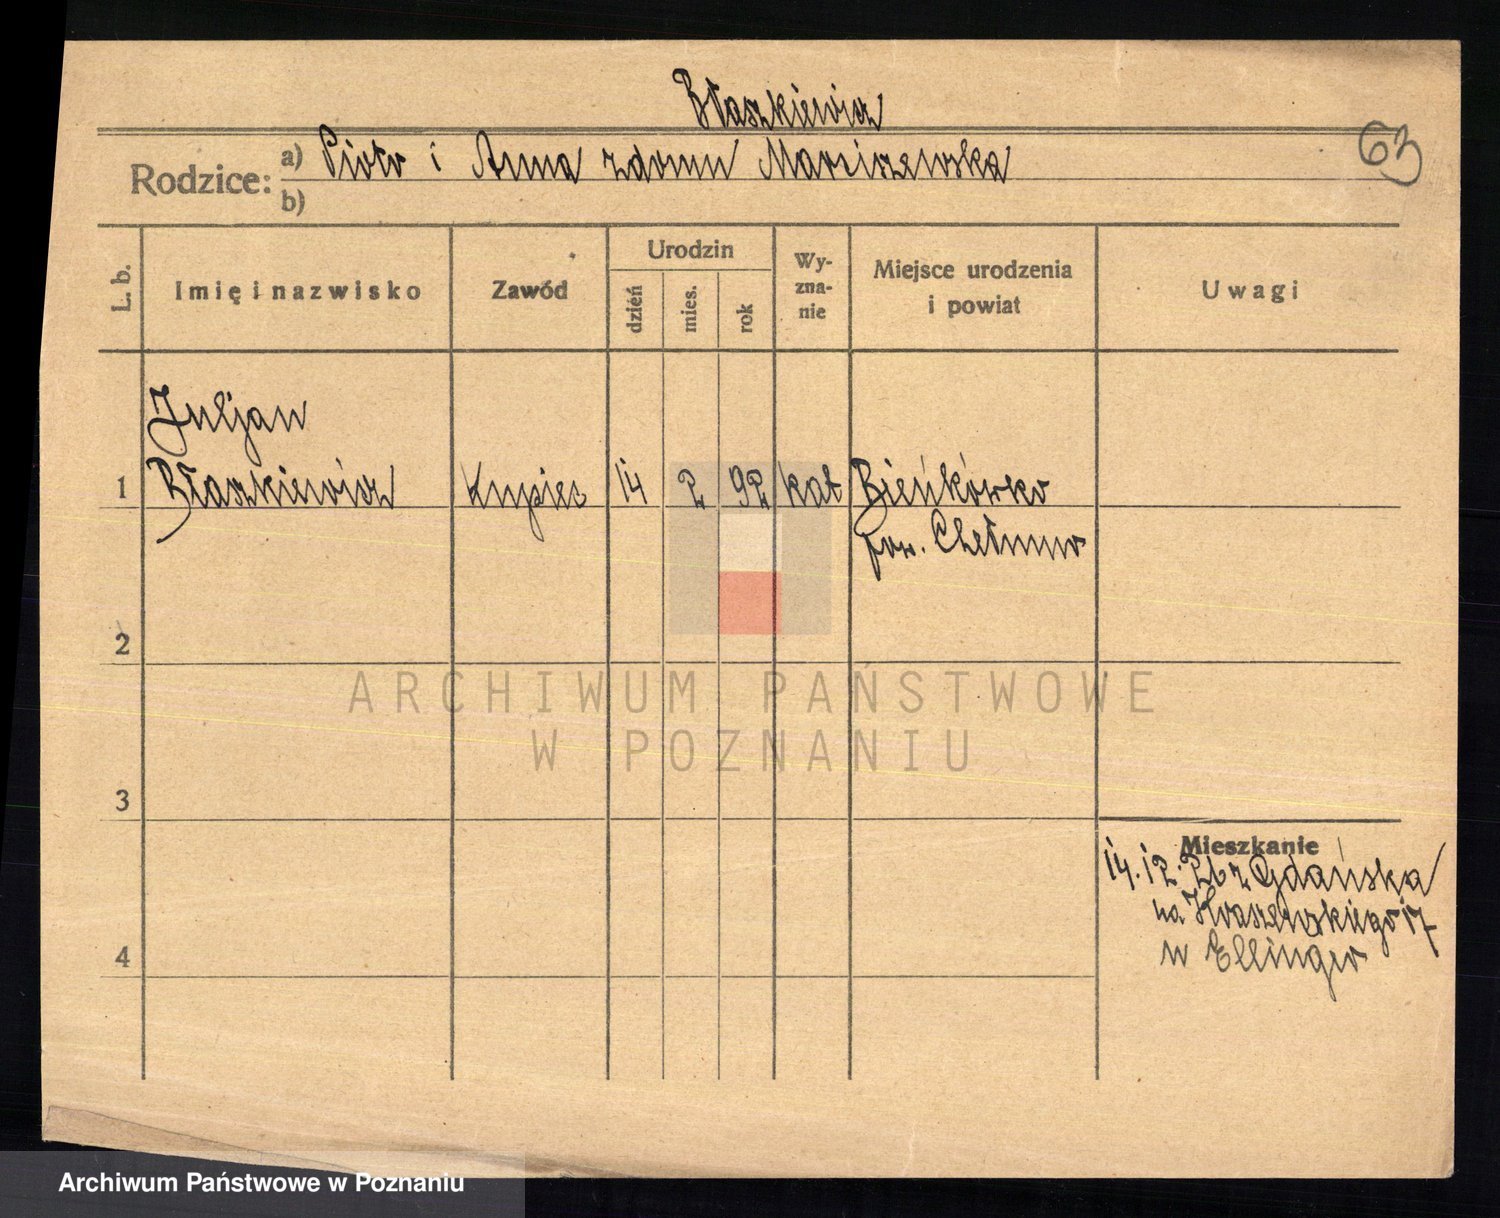 Błaszkiewicz
63
Rodzice: a) Piotr i Anna zdomu Marciszewska
b)
L. b.
Imię i nazwisko
Zawód
Urodzin
dzień
mies.
rok
Wy-
zna-
nie
Miejsce urodzenia
i powiat
Uwagi
Juljan
1 Błaszkiewicz Kupiec 14 2 92 kat Bieńkówko
pow. Chełmno
2
ARCHIWUM PAŃSTWOWE
W POZNANIU
3
Mieszkanie
14.12.26 z Gdańska
na Kraszewskiego 17
4
w Ellinger
Archiwum Państwowe w Poznaniu